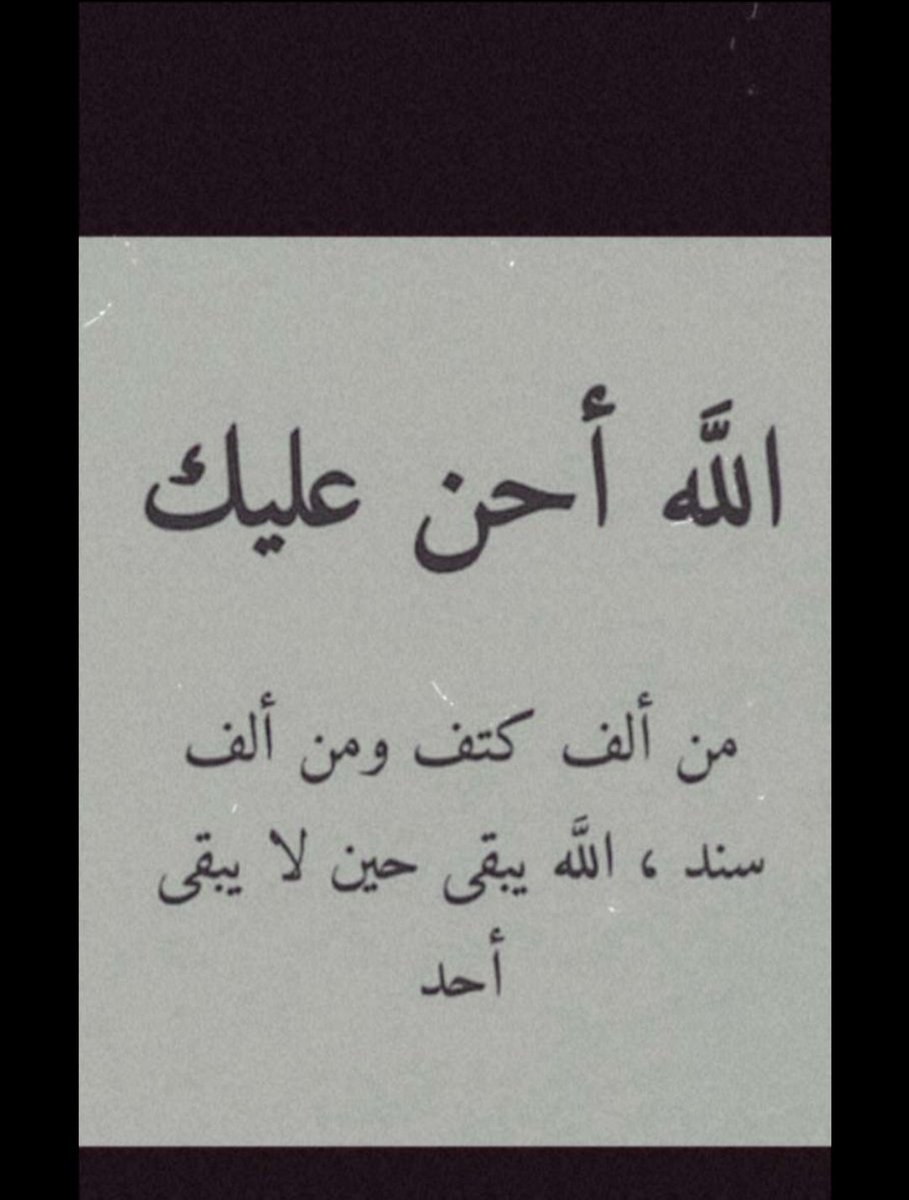 اللَّه أحن عليك
من ألف كتف ومن ألف
سند ، اللَّه يبقى حين لا يبقى
أحد